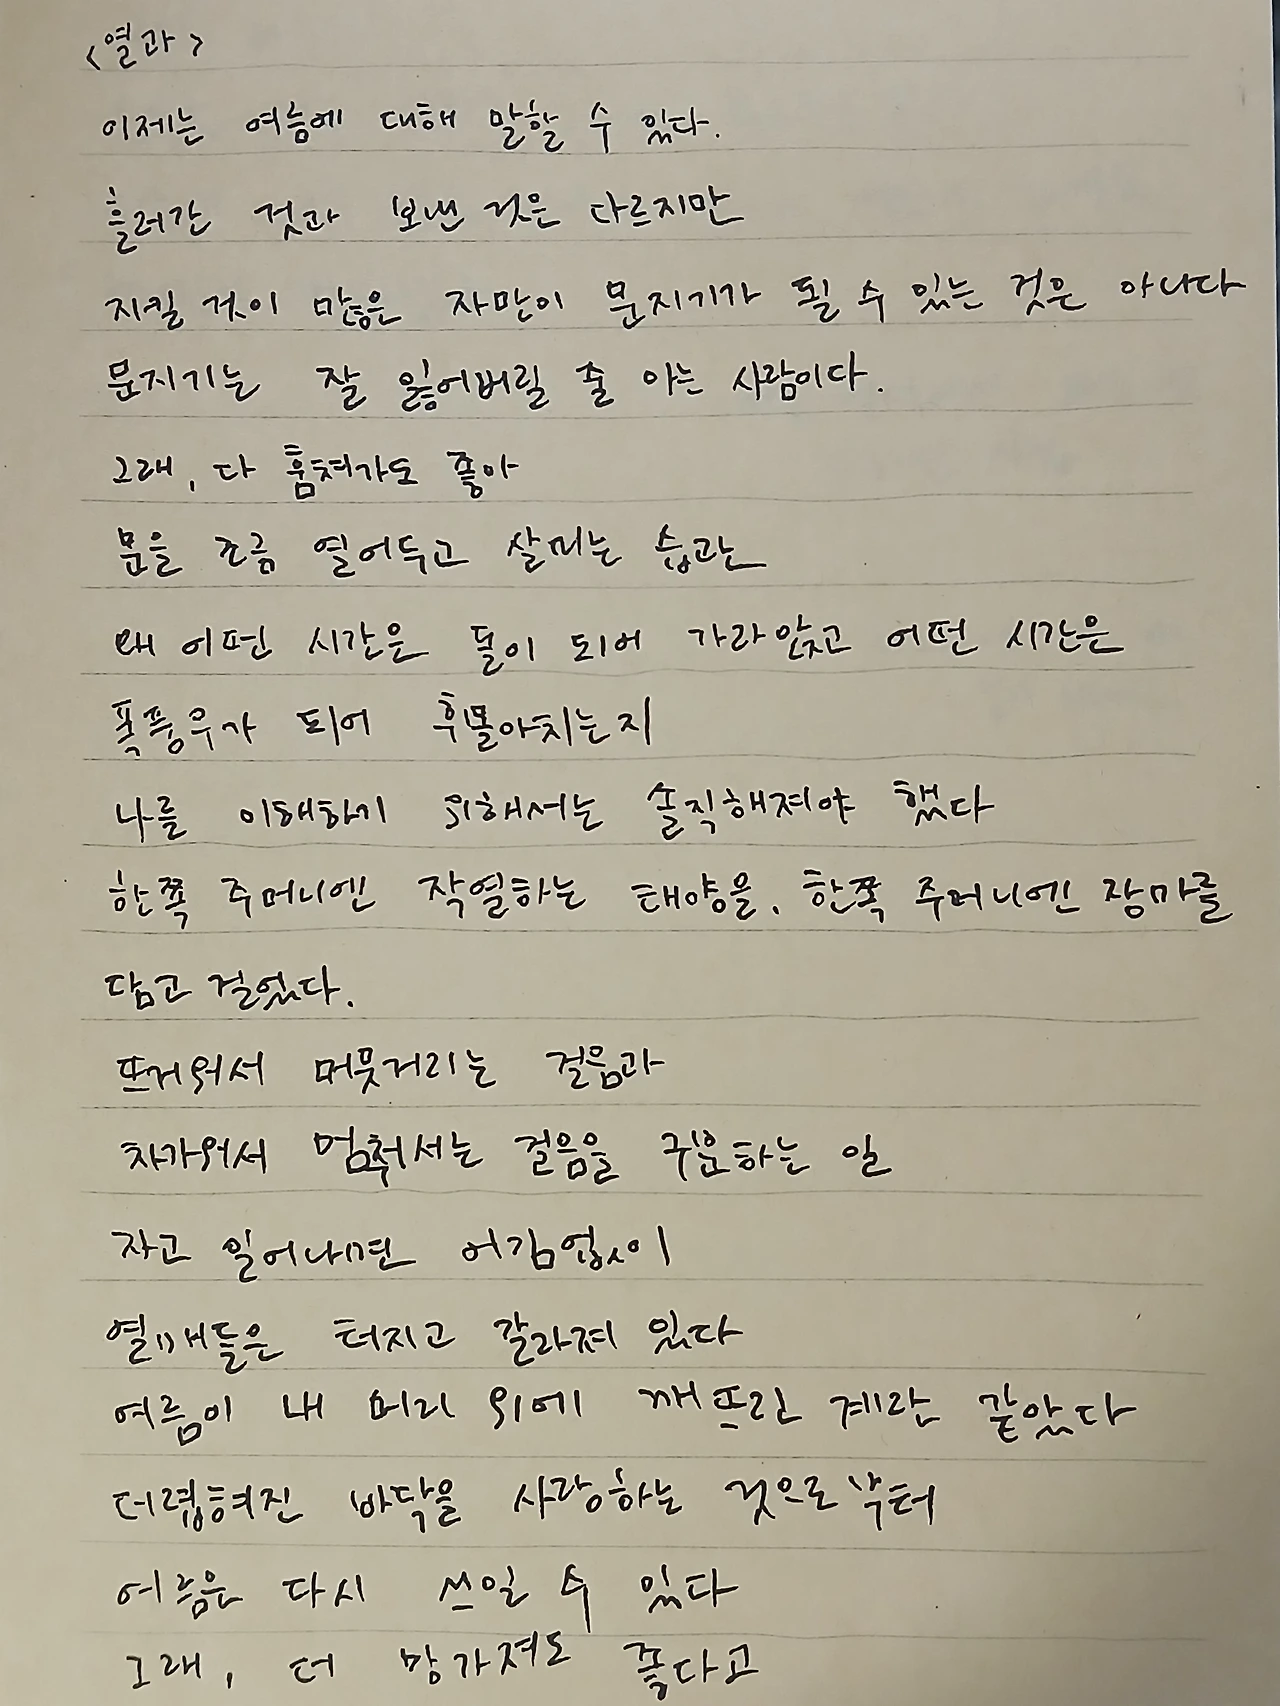 <열과>
이제는 여름에 대해 말할 수 있다.
흘러간 것과 보낸 것은 다르지만
지킬 것이 많은 자만이 문지기가 될 수 있는 것은 아니다
문지기는 잘 잃어버릴 줄 아는 사람이다.
그래, 다 훔쳐가도 좋아
문을 조금 열어두고 살피는 습관
왜 어떤 시간은 돌이 되어 가라앉고 어떤 시간은
폭풍우가 되어 휘몰아치는지
나를 이해하기 위해서는 솔직해져야 했다
한쪽 주머니엔 작열하는 태양을, 한쪽 주머니엔 장마를
담고 걸었다.
뜨거워서 머뭇거리는 걸음과
차가워서 멈춰서는 걸음을 구분하는 일
자고 일어나면 어김없이
열매들은 터지고 갈라져 있다
여름이 내 머리 위에 깨뜨린 계란 같았다
더럽혀진 바닥을 사랑하는 것으로부터
여름은 다시 쓰일 수 있다
그래, 더 망가져도 좋다고